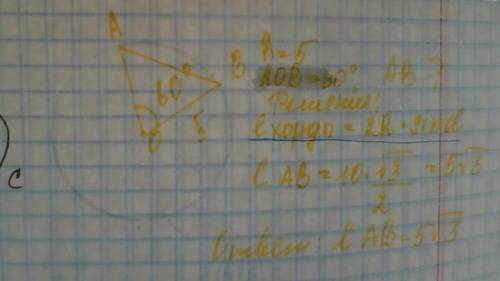 A
B
60°
5
O
C
R=5
AOB=60° AB-?
Решения:
l хорды = 2R·sinα
l AB=10·√3/2=5√3
Ответ: l AB=5√3